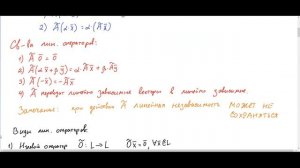 2) Ã(αx̄) = α·(Ãx̄)
Св-ва лин. операторов:
1) Ã ō = ō
2) Ã(αx̄ + βȳ) = α·Ãx̄ + β·Ãȳ
3) Ã(-x̄) = -Ãx̄
4) Ã переводит линейно зависимые векторы в линейно зависимые.
Замечание: при действии Ã линейная независимость МОЖЕТ НЕ
СОХРАНЯТЬСЯ
Виды лин. операторов
1) Нулевой оператор Õ: L→L Õx̄ = ō, ∀x̄∈L